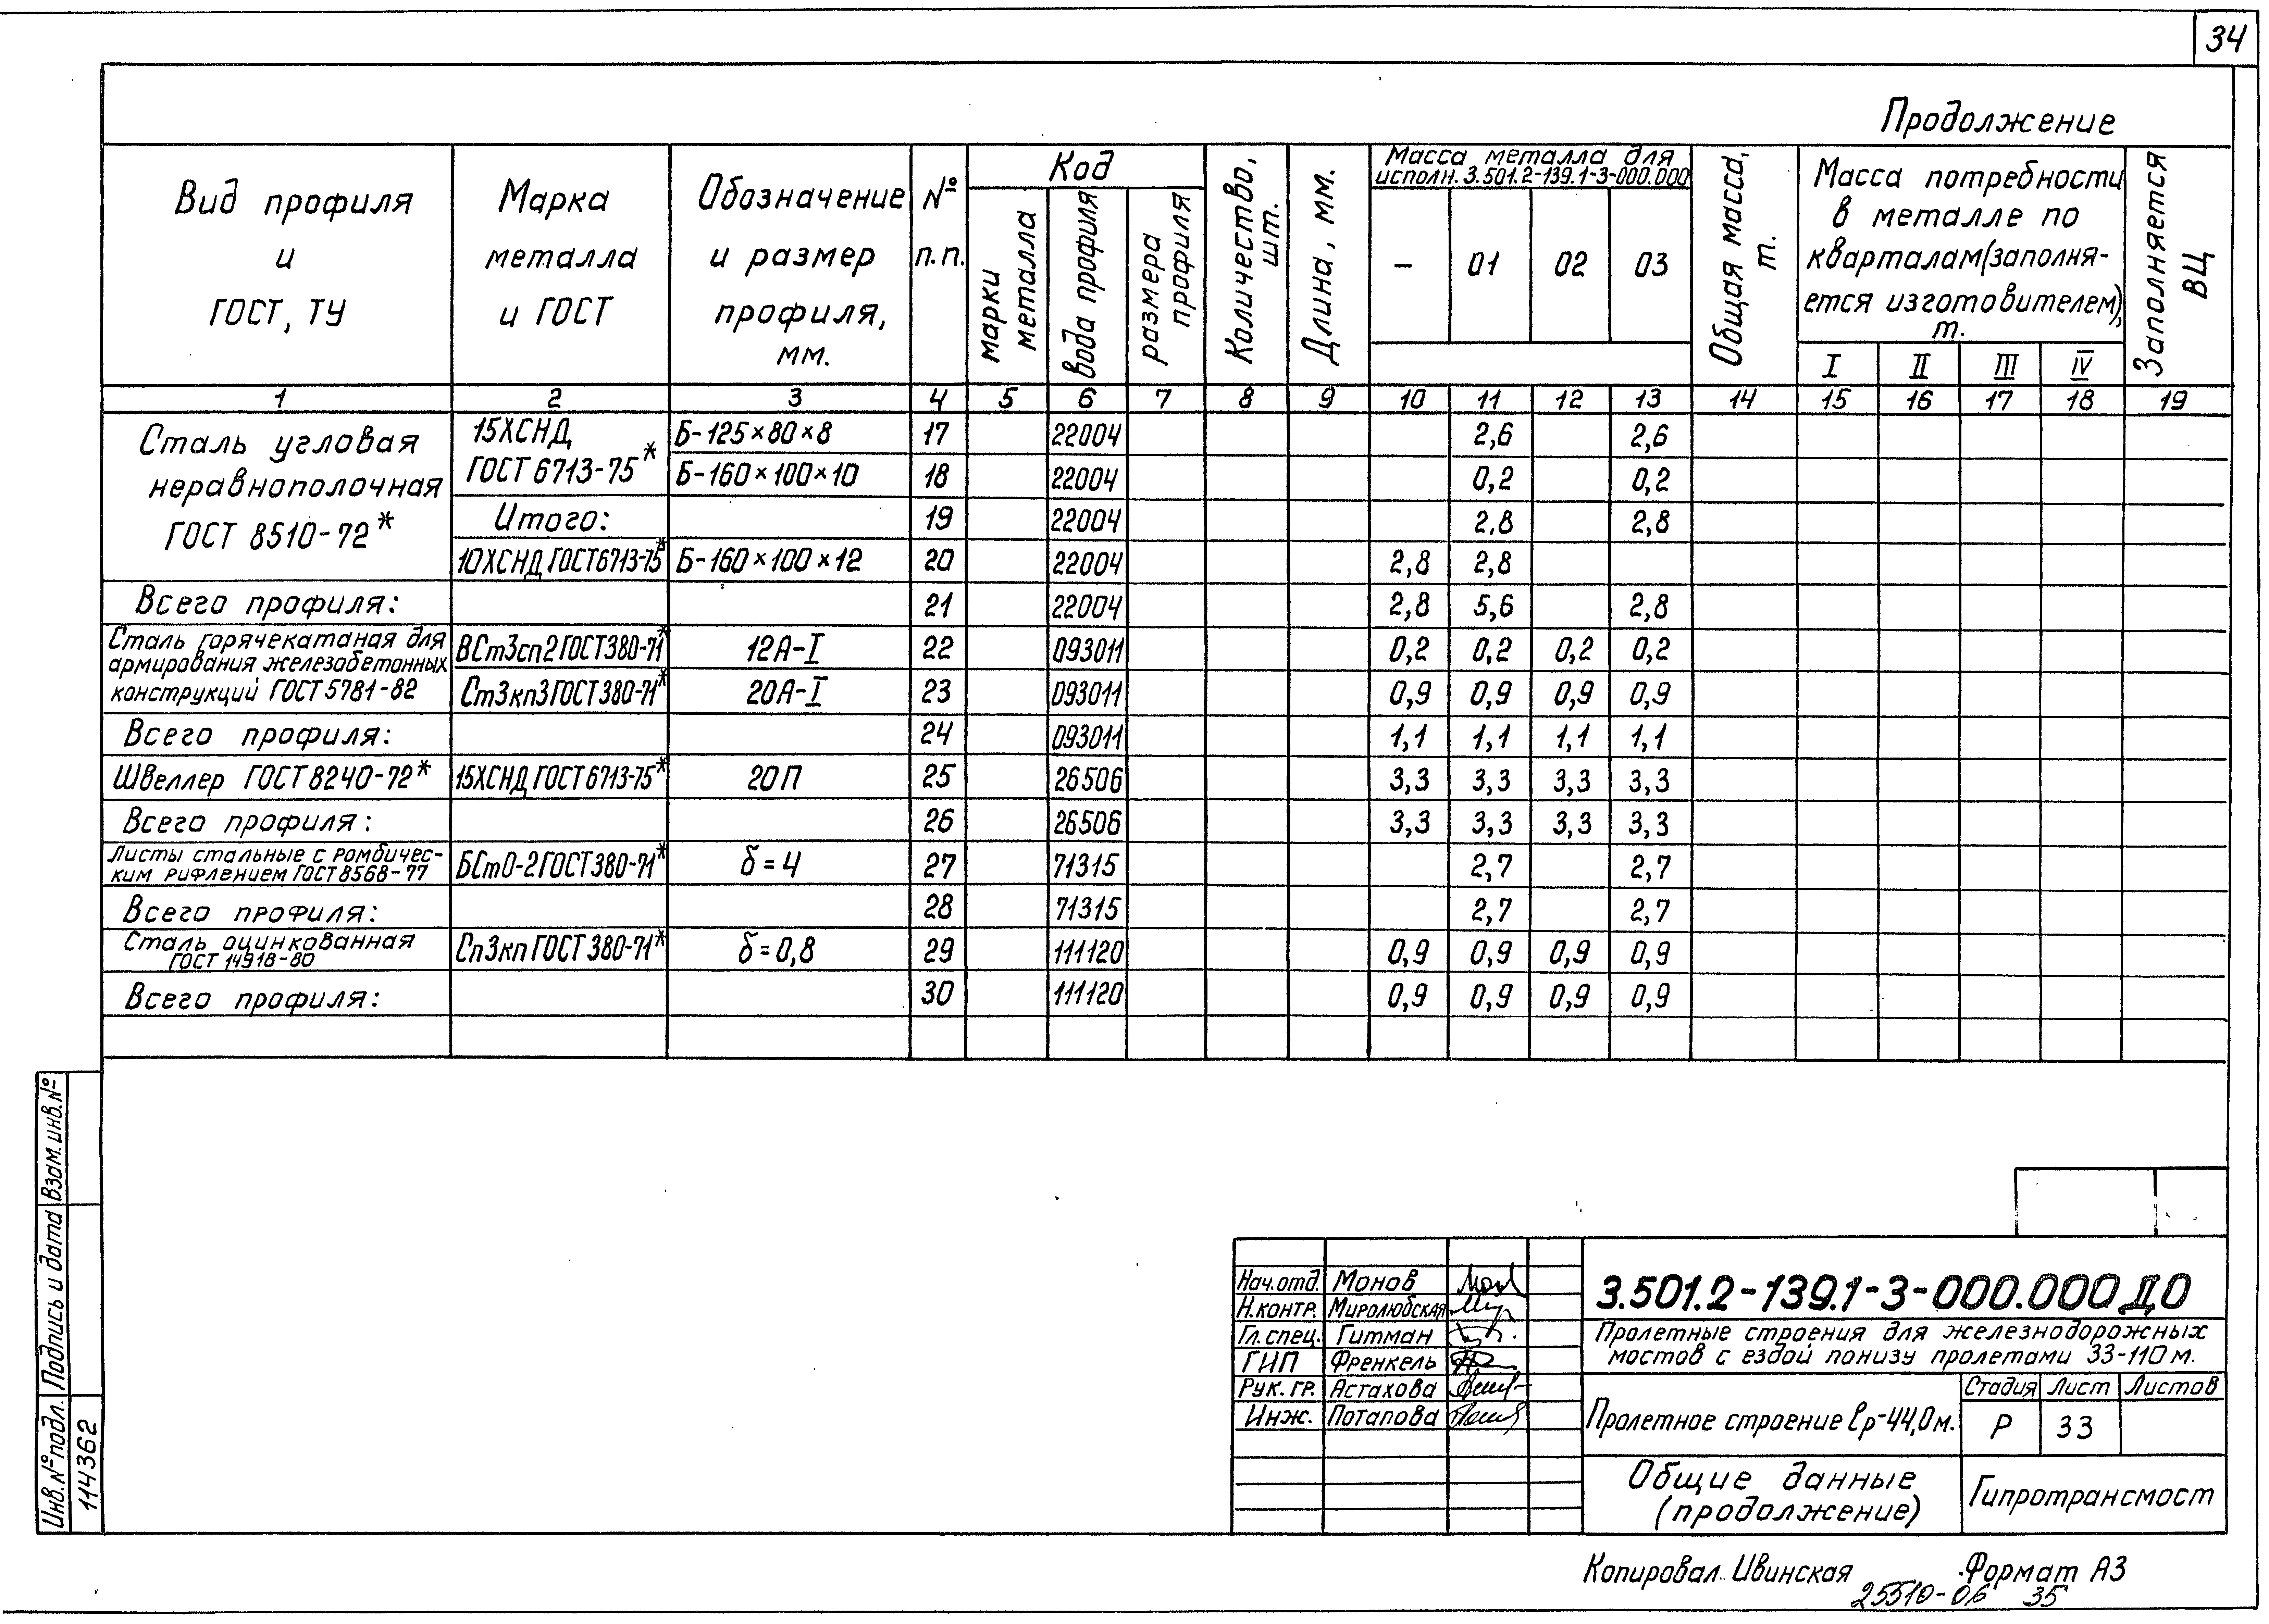 34
Продолжение
Вид профиля и ГОСТ, ТУ
Марка металла и ГОСТ
Обозначение и размер профиля, мм.
№ п.п.
Код
марки металла
вода профиля
размера профиля
Количество, шт.
Длина, мм.
Масса металла для исполн. 3.501.2-139.1-3-000.000
– 01 02 03
Общая масса, т.
Масса потребности в металле по кварталам (заполняется изготовителем), т.
I II III IV
Заполняется ВЦ
1 2 3 4 5 6 7 8 9 10 11 12 13 14 15 16 17 18 19
Сталь угловая неравнополочная ГОСТ 8510-72*
15ХСНД ГОСТ 6713-75*
Б-125×80×8 17 22004 2,6 2,6
Б-160×100×10 18 22004 0,2 0,2
Итого: 19 22004 2,8 2,8
10ХСНД ГОСТ6713-75* Б-160×100×12 20 22004 2,8 2,8
Всего профиля: 21 22004 2,8 5,6 2,8
Сталь горячекатаная для армирования железобетонных конструкций ГОСТ 5781-82
ВСт3сп2 ГОСТ380-71* 12А-I 22 093011 0,2 0,2 0,2 0,2
Ст3кп3 ГОСТ380-71* 20А-I 23 093011 0,9 0,9 0,9 0,9
Всего профиля: 24 093011 1,1 1,1 1,1 1,1
Швеллер ГОСТ 8240-72* 15ХСНД ГОСТ 6713-75* 20П 25 26506 3,3 3,3 3,3 3,3
Всего профиля: 26 26506 3,3 3,3 3,3 3,3
Листы стальные с ромбическим рифлением ГОСТ 8568-77 БСт0-2 ГОСТ380-71* δ=4 27 71315 2,7 2,7
Всего профиля: 28 71315 2,7 2,7
Сталь оцинкованная ГОСТ 14918-80 Сп3кп ГОСТ 380-71* δ=0,8 29 111120 0,9 0,9 0,9 0,9
Всего профиля: 30 111120 0,9 0,9 0,9 0,9
Инв.№подл. Подпись и дата Взам.инв.№
114362
Нач.отд. Монов
Н.контр. Миролюбская
Гл.спец. Гитман
ГИП Френкель
Рук.гр. Астахова
Инж. Потапова
3.501.2-139.1-3-000.000 Д0
Пролетные строения для железнодорожных
мостов с ездой понизу пролетами 33-110 м.
Пролетное строение ℓр-44,0м.
Стадия Лист Листов
Р 33
Общие данные
(продолжение)
Гипротрансмост
Копировал Ивинская Формат А3
25510-06 35